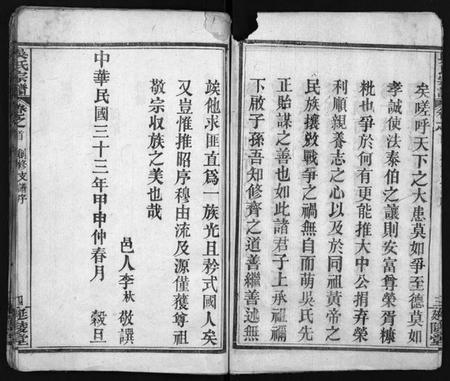 矣嗟呼天下之大患莫如爭至德莫如
孝誠使法泰伯之讓則安富尊榮胥糠
粃也爭於何有更能推大中公捐弃榮
利順親養志之心以及於同祖黃帝之
民族攘敚戰爭之禍無自而萌吳氏先
正貽謀之善也如此諸君子上承祖禰
下啟子孫吾知修齊之道善繼善述無
竢他求匪直為一族光且矜式國人矣
又豈惟推昭序穆由流及源僅獲尊祖
敬宗收族之美也哉
邑人李秋敬譔
中華民國三十三年甲申仲春月 穀旦
吳氏宗譜 卷之首 創修支譜序 四 延陵堂